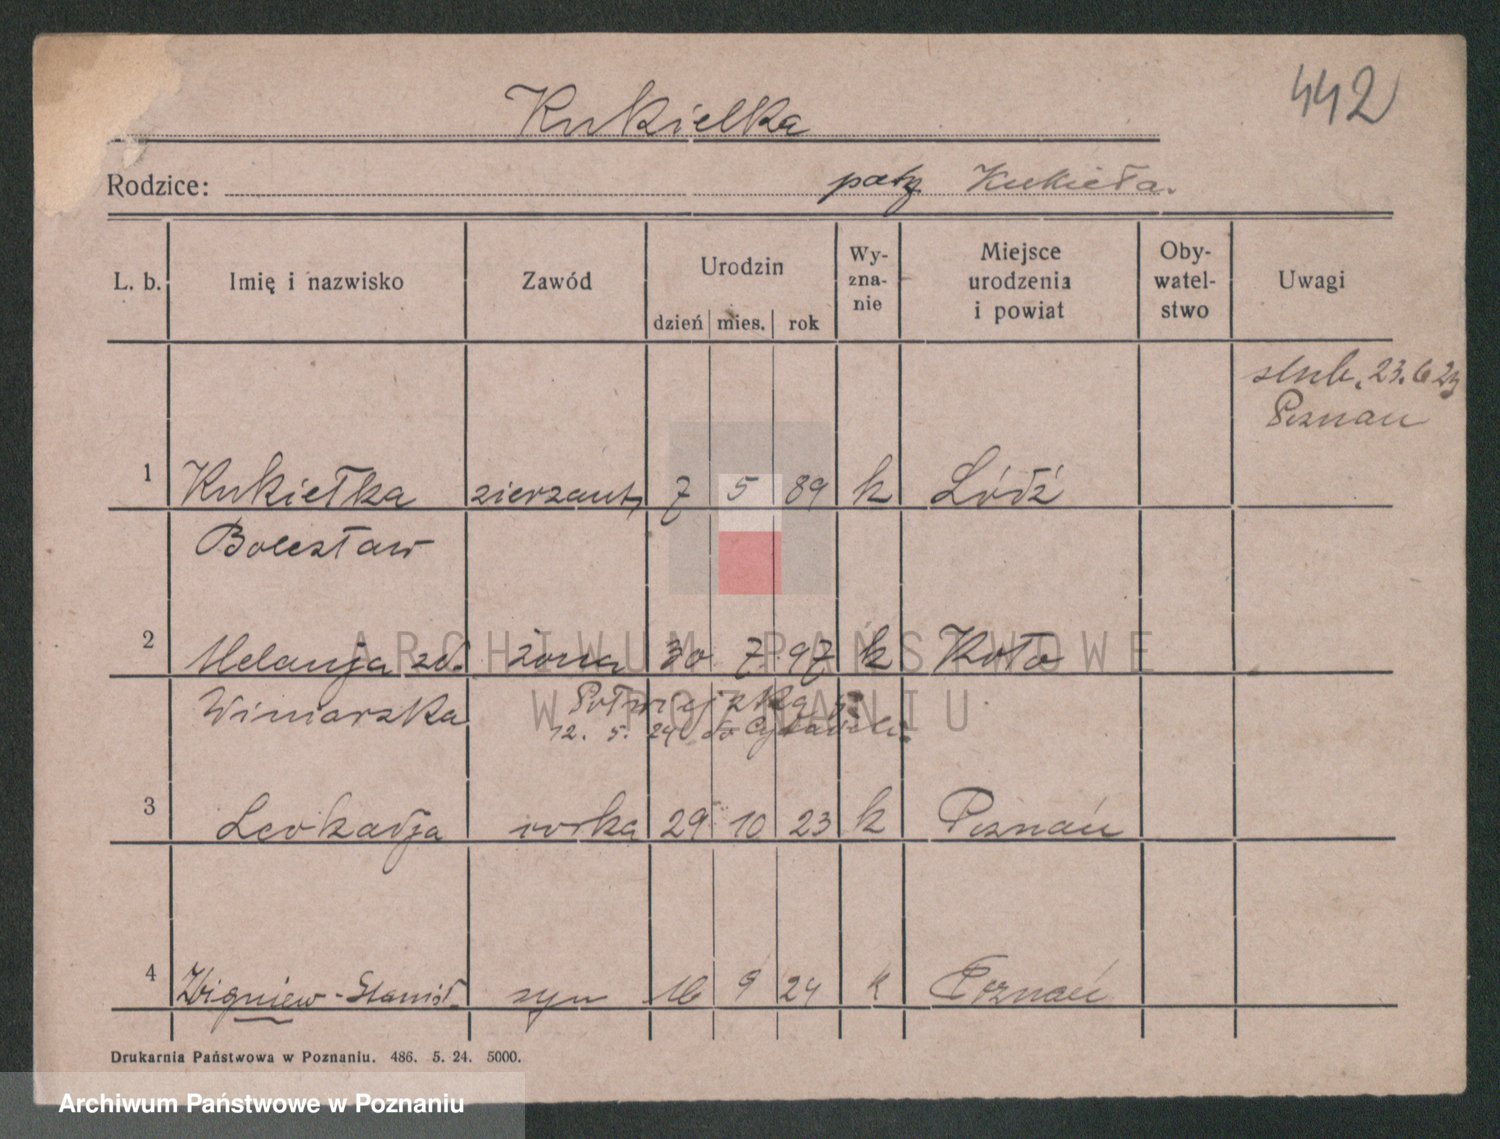 442
Kukielka
Rodzice: patrz Kukieła.
L. b. Imię i nazwisko Zawód Urodzin dzień mies. rok Wy-zna-nie Miejsce urodzenia i powiat Oby-watel-stwo Uwagi
slub. 23.6 23
Poznan
1 Kukiełka sierzant 7 5 89 k Łódź
Bolesław
2 Melanja zd. żona 30 7 97 k Koło
Winiarska Półwiejska
12. 5. 24 do Cytadeli
3 Leokadja córka 29 10 23 k Poznań
4 Zbigniew-Stanisł. syn 16 9 24 k Poznań
Drukarnia Państwowa w Poznaniu. 486. 5. 24. 5000.
ARCHIWUM PAŃSTWOWE
W POZNANIU
Archiwum Państwowe w Poznaniu